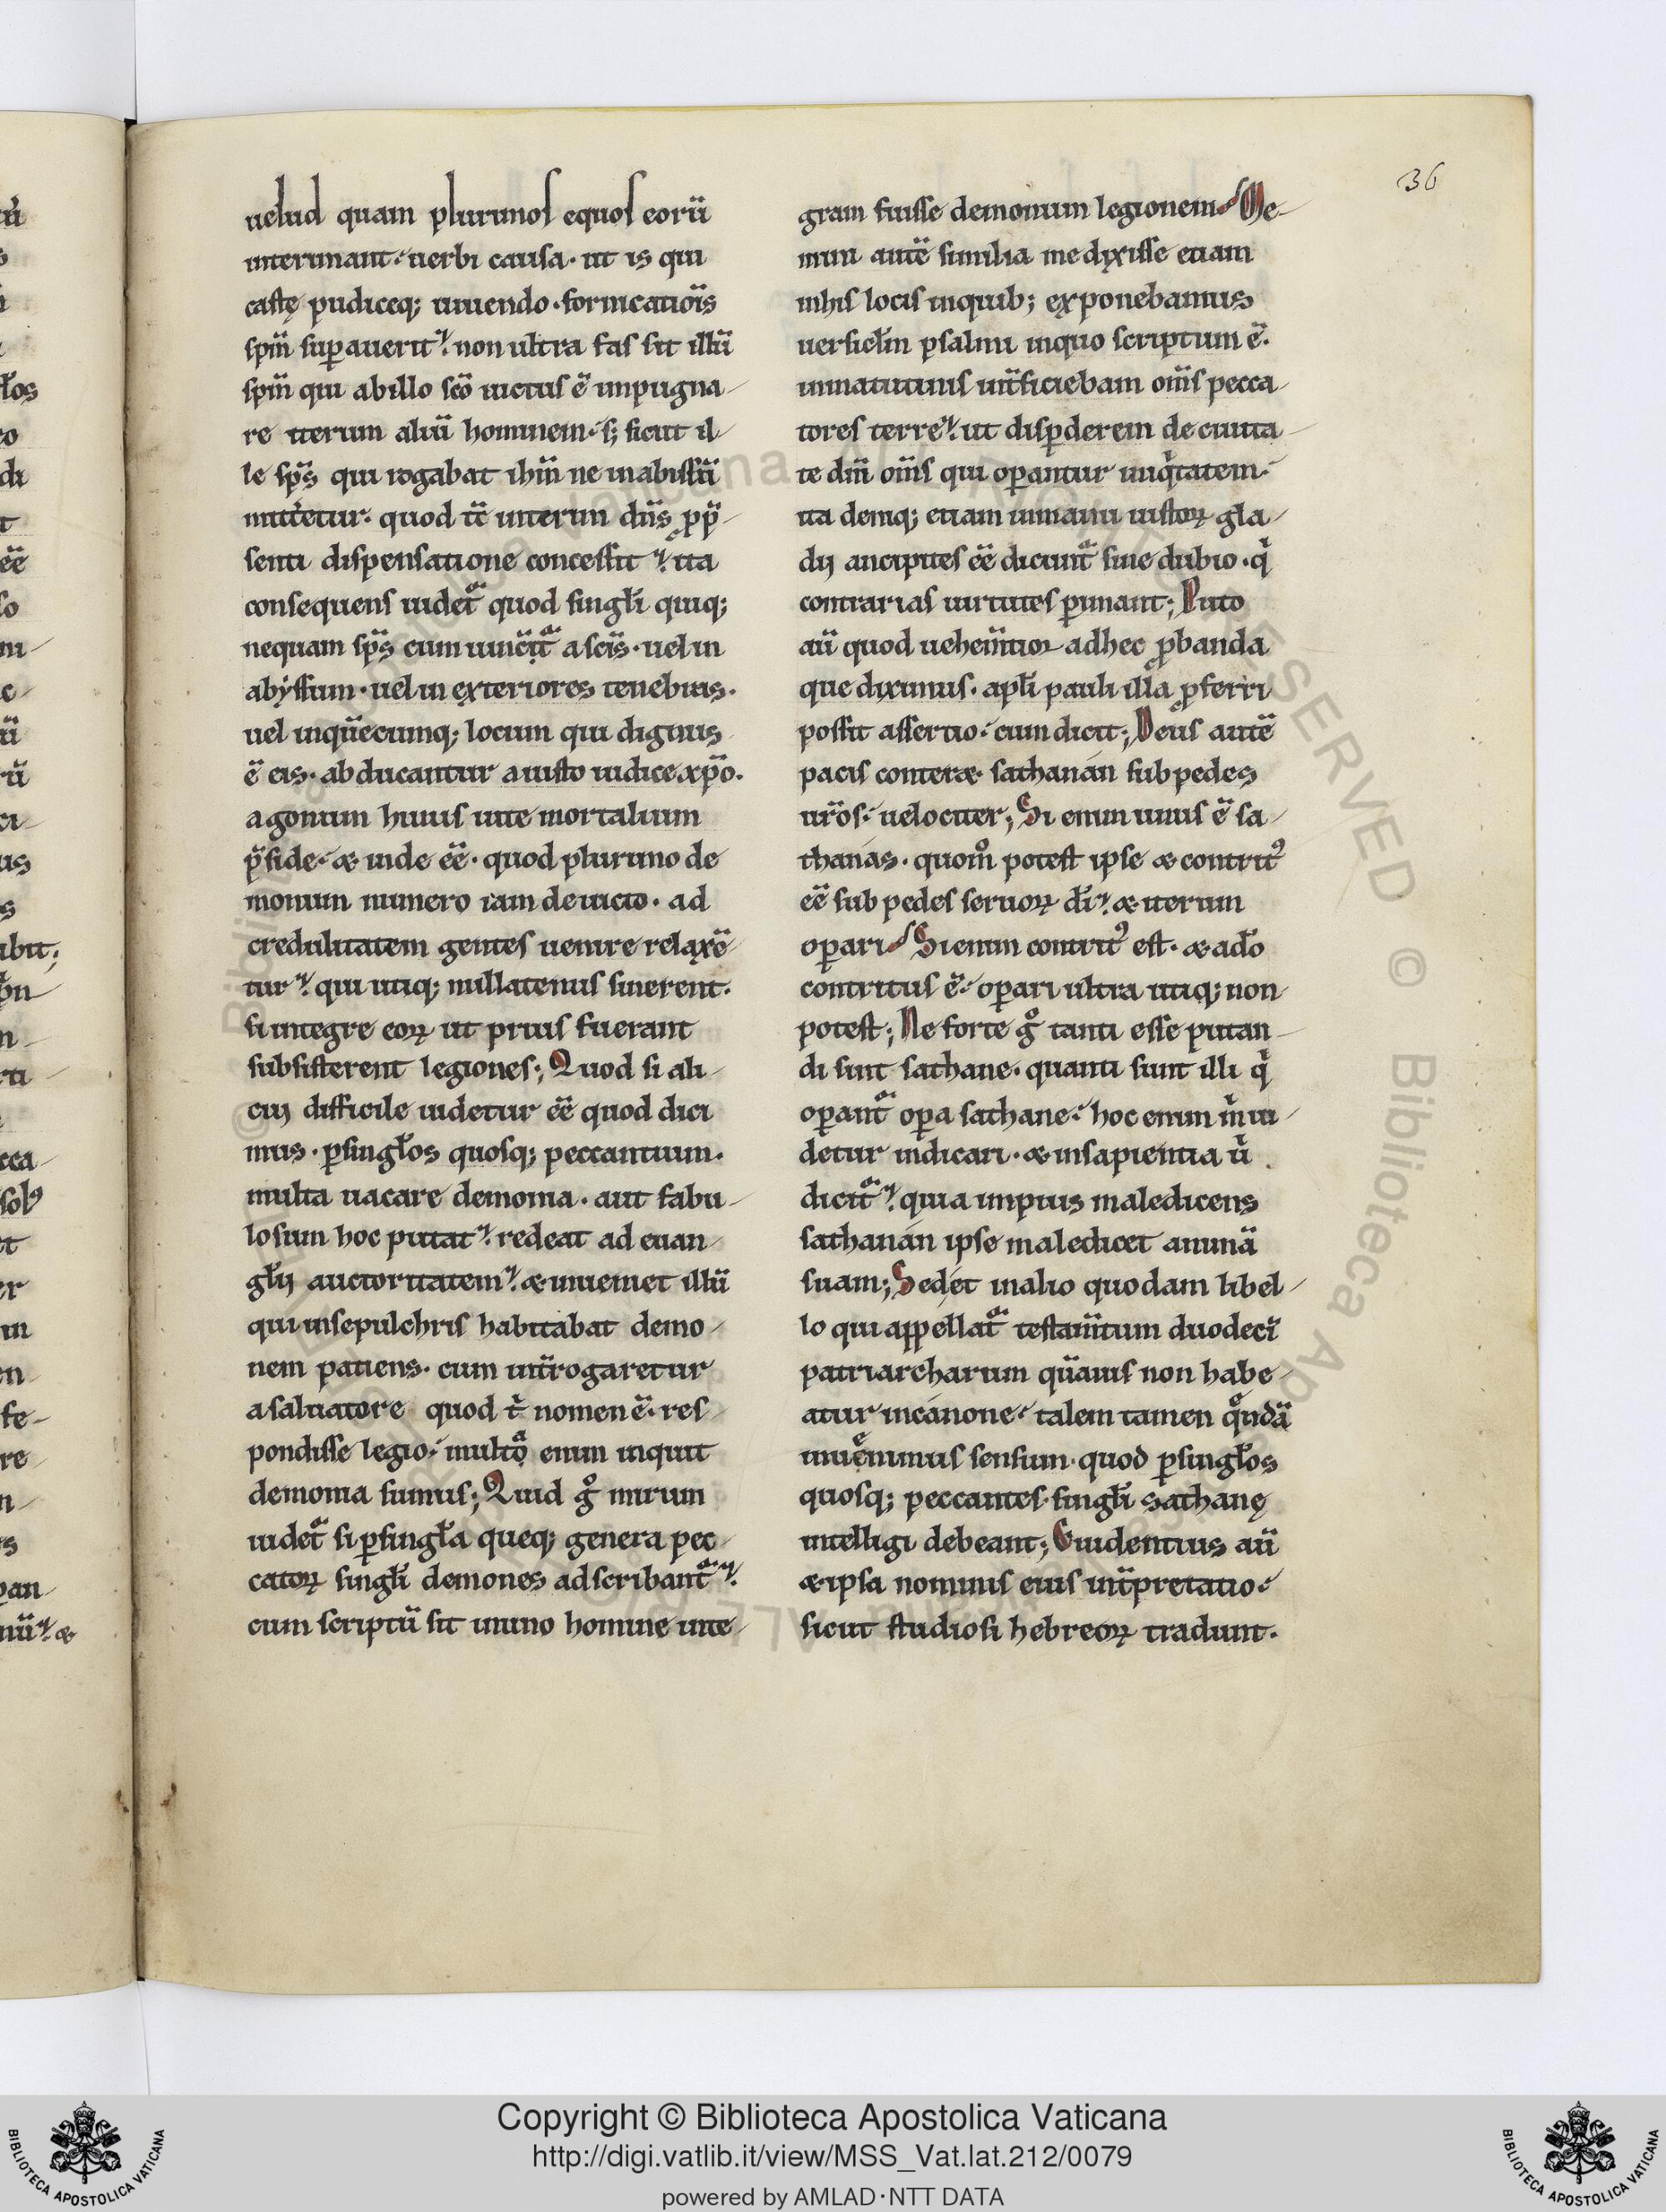 36
uelud quam plurimos equos eorū
interimant. uerbi causa. ut is qui
castę pudiceq; uiuendo. fornicatiōis
sp̄m sup̱auerit. non ultra fas sit illū
sp̄m qui abillo sc̄o uictus ē impugna-
re iterum aliū hominem. s; sicut il-
le sp̄s qui rogabat ih̄m ne inabissū
mitteretur. quod & interim dn̄s p̱p̄-
senti dispensatione concessit. ita
consequens uidet̄ quod singłi quiq;
nequam sp̄s cum uincūt̄ a sc̄is. uel in
abyssum. uel in exteriores tenebras.
uel inquēcumq; locum qui dignus
ē eis. abducantur aiusto iudice xp̄o.
agonum huius uite mortalium
p̄side. & inde ēē. quod plurimo de
monum numero iam deuicto. ad
credulitatem gentes uenire relaxē-
tur. qui utiq; nullatenus sinerent.
si integre eoꝝ ut prius fuerant
subsisterent legiones; Quod si ali-
cui difficile uidetur ēē quod dici
mus. ꝑsingłos quosq; peccantium.
multa uacare demonia. aut fabu-
losum hoc putat. redeat ad euan-
głii auctoritatem. & inueniet illū
qui insepulchris habitabat demo-
nem patiens. cum int̄rogaretur
asaluatore quod t̄ nomen ē. res-
pondisse legio. multa enim inquit
demonia sumus; Quid g̊ mirum
uidet̄ si ꝑsingła queq; genera pec-
catoꝝ singłi demones adscribant̄.
cum scriptū sit inuno homine inte-
gram fuisse demonum legionem. Me-
mini autē similia me dixisse etiam
inhis locis inquib; exponebamus
uersicłm psalmi inquo scriptum ē.
inmatutinis int̄ficiebam om̄s pecca-
tores terre. ut disꝑderem de ciuita-
te dn̄i om̄s qui oꝑantur iniq̇tatem.
ita deniq; etiam inmanu iustoꝝ gła-
dii ancipites ēē dicunt̄ sine dubio. q̇
contrarias uirtutes ꝑimant; Puto
aū quod uehem̄tior adhec ꝓbanda
que diximus. apłi pauli illa ꝓferri
possit assertio. cum dicit; Deus autē
pacis conter& sathanan sub pedes
ur̄os. uelociter; Si enim unus ē sa-
thanas. quom̊ potest ipse & contritꝰ
ēē sub pedes seruoꝝ dī. & iterum
oꝑari. Si enim contritꝰ est. & a d̄o
contritus ē. oꝑari ultra utiq; non
potest; Ne forte g̊ tanti esse putan-
di sint sathane. quanti sunt illi q̇
oꝑant̄ oꝑa sathane. hoc enim ṁ ui-
detur indicari. & insapientia u̇
dicit̄. quia impius maledicens
sathanan ipse maledicet animā
suam; Sed et inalio quodam libel-
lo qui appellat̄ testam̄tum duodeci
patriarcharum quāuis non habe-
atur incanone. talem tamen quendā
inuenimus sensum. quod ꝑsingłos
quosq; peccantes. singłi sathanę
intelligi debeant; Euidentius aū
& ipsa nominis eius int̄pretatio.
sicut studiosi hebreoꝝ tradunt.
Copyright © Biblioteca Apostolica Vaticana
http://digi.vatlib.it/view/MSS_Vat.lat.212/0079
powered by AMLAD·NTT DATA
BIBLIOTECA APOSTOLICA VATICANA
BIBLIOTECA APOSTOLICA VATICANA